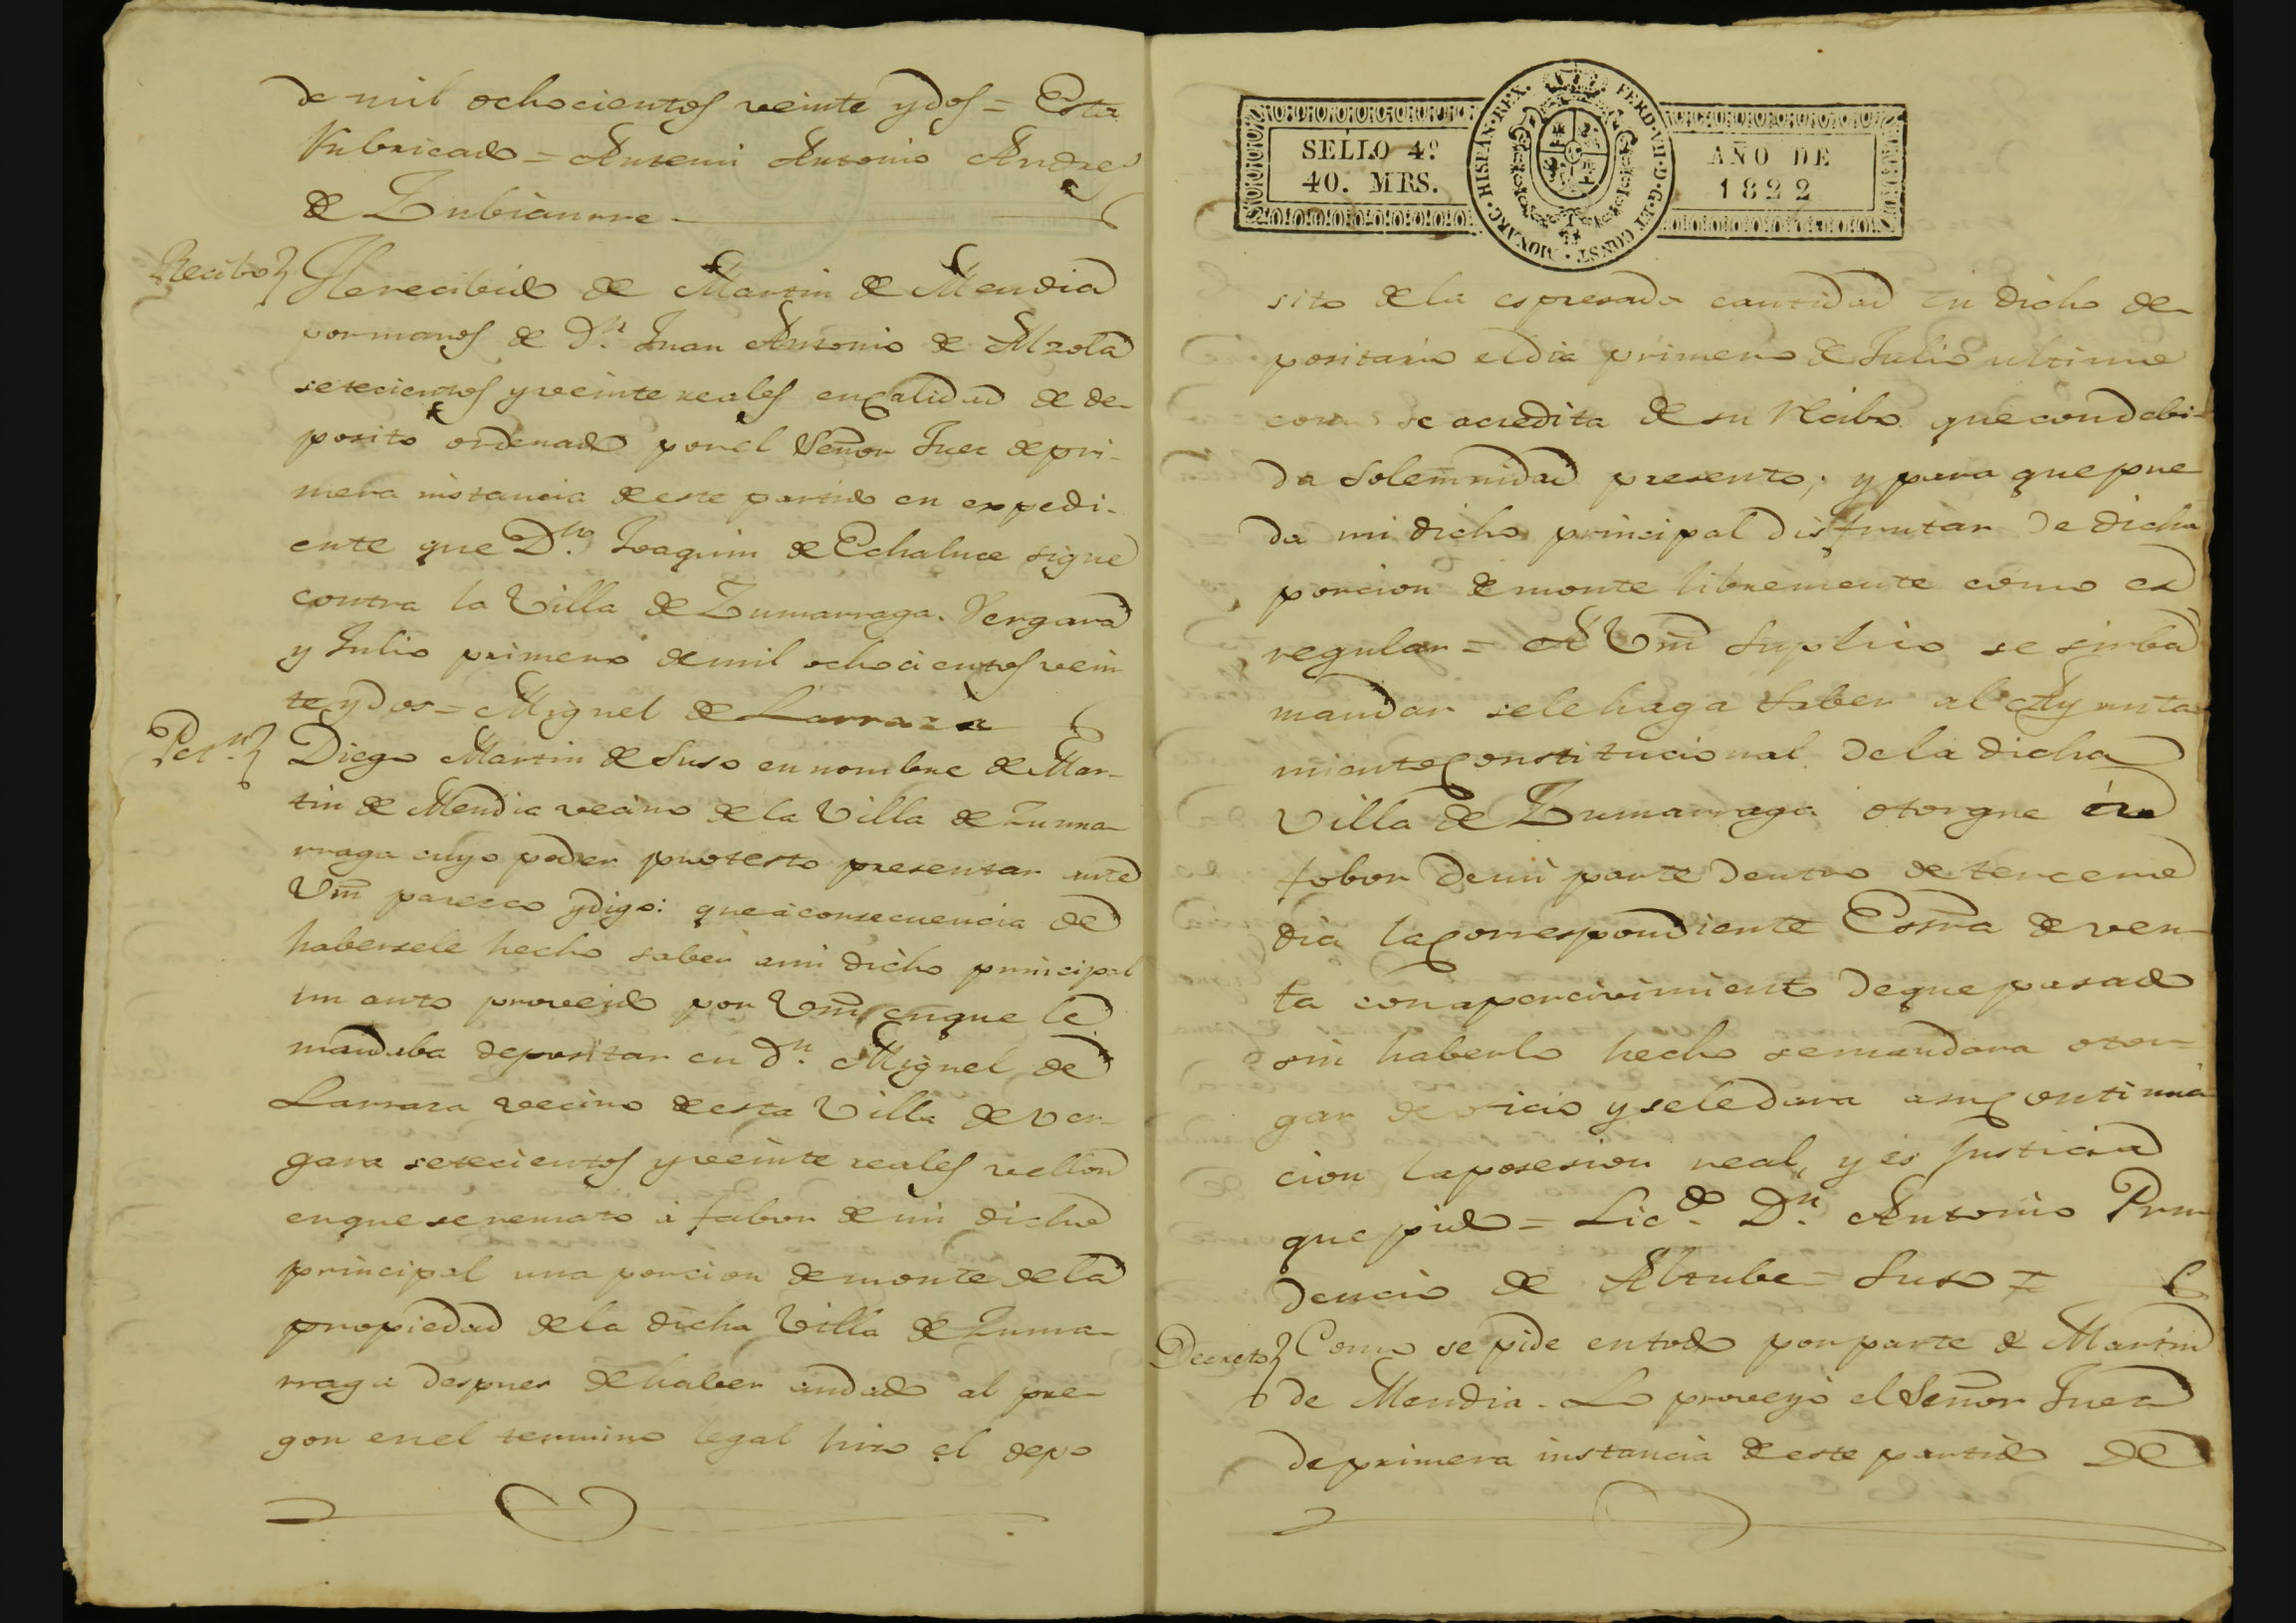 de mil ochocientos veinte y dos = Esta
Rubricado = Antemi Antonio Andres
de Zubiaurre
Recibo He recibido de Martin de Mendia
por manos de Dn. Juan Antonio de Alzola
setecientos y veinte reales en calidad de de-
posito ordenado por el Señor Juez de pri-
mera instancia de este partido en expedi-
ente que Dn. Joaquin de Echaluce sigue
contra la Villa de Zumarraga. Vergara
y Julio primero de mil ochocientos vein
te y dos = Miguel de Larraza
Petn. Diego Martin de Suso en nombre de Mar-
tin de Mendia vecino de la Villa de Zuma-
rraga cuyo poder protesto presentar ante
Vm̃ paresco y digo: que a consecuencia de
habersele hecho saber a mi dicho principal
un auto proveido por Vm̃ en que le
mandaba depositar en Dn. Miguel de
Larraza vecino de esta Villa de Ver-
gara setecientos y veinte reales vellon
en que se remato á fabor de mi dicho
principal una porcion de monte de la
propiedad de la dicha Villa de Zuma-
rraga despues de haber andado al pre-
gon en el termino legal hizo el depo
SELLO 4º
40. MRS.
HISPAN·REX. FERD·VII·D·G·ET CONST·MONARC·
AÑO DE
1822
sito de la espresada cantidad en dicho de-
positario el dia primero de Julio ultimo
como se acredita de su recibo que con debi-
da solemnidad presento; y para que pue
da mi dicho principal disfrutar de dicha
porcion de monte libremente como es
regular = A Vm̃ Suplico se sirba
mandar se le haga saber al Ayunta
miento Constitucional de la dicha
Villa de Zumarraga otorgue
fabor de mi parte dentro de tercero
dia la correspondiente Esrra de ven-
ta con apercivimiento de que pasado
sin haberlo hecho se mandara otor-
gar de oficio y se le dara a su continua
cion la posesion real, y es Justicia
que pido = Licdo. Dn. Antonio Pru
dencio de Alzube = Suso =
Decreto Como se pide en todo por parte de Martin
de Mendia. Lo proveyó el Señor Juez
de primera instancia de este partido de